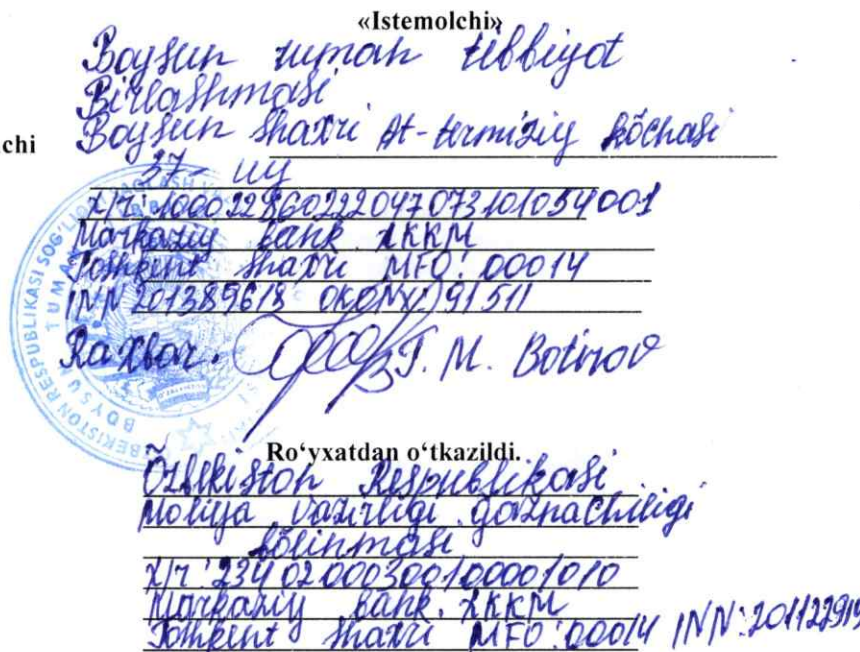 «Istemolchi»
Boysun tuman tibbiyot
Birlashmasi
Boysun shaxri At-termiziy kõchasi
chi
37- uy
x/r: 100022860222047073101054001
Markaziy bank XKKM
Toshkent shaxri MFO: 00014
INN 201389618 OKONX: 91511
Raxbar. T. M. Botirov
Ro‘yxatdan o‘tkazildi.
Õzbekiston Respublikasi
Moliya vazirligi gaznachiligi
bõlinmasi
x/r: 23402000300100001010
Markaziy bank. XKKM
Toshkent shaxri MFO: 00014 INN: 201122919